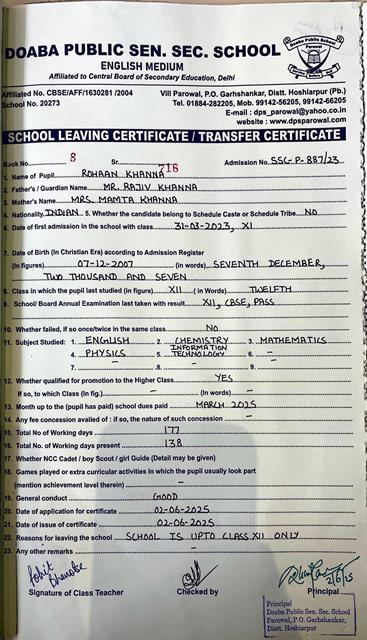 DOABA PUBLIC SEN. SEC. SCHOOL
ENGLISH MEDIUM
Affiliated to Central Board of Secondary Education, Delhi
Doaba Public School
Parowal
Affiliated No. CBSE/AFF/1630281 /2004
School No. 20273
Vill Parowal, P.O. Garhshankar, Distt. Hoshiarpur (Pb.)
Tel. 01884-282205, Mob. 99142-56205, 99142-66205
E-mail : dps_parowal@yahoo.co.in
website : www.dpsparowal.com
SCHOOL LEAVING CERTIFICATE / TRANSFER CERTIFICATE
Book No. 8 Sr. 716 Admission No. SSG-P-887/23
1. Name of Pupil ROHAAN KHANNA
2. Father's / Guardian Name MR. RAJIV KHANNA
3. Mother's Name MRS. MAMTA KHANNA
4. Nationality INDIAN 5. Whether the candidate belong to Schedule Caste or Schedule Tribe. NO
6. Date of first admission in the school with class 31-03-2023, XI
7. Date of Birth (In Christian Era) according to Admission Register
(In figures) 07-12-2007 (in words) SEVENTH DECEMBER,
TWO THOUSAND AND SEVEN
8. Class in which the pupil last studied (in figure) XII ( in Words) TWELFTH
9. School/ Board Annual Examination last taken with result XII, CBSE, PASS
10. Whether failed, if so once/twice in the same class. NO
11. Subject Studied : 1. ENGLISH 2. CHEMISTRY 3. MATHEMATICS
4. PHYSICS 5. INFORMATION TECHNOLOGY 6. –
7. – 8. – 9. –
12. Whether qualified for promotion to the Higher Class. YES
If so, to which Class (in fig.) – (In words) –
13. Month up to the (pupil has paid) school dues paid MARCH 2025
14. Any fee concession availed of : if so, the nature of such concession –
15. Total No of Working days 177
16. Total No. of Working days present 138
17. Whether NCC Cadet / boy Scout / girl Guide (Detail may be given)
18. Games played or extra curricular activities in which the pupil usually look part
(mention achievement level therein) –
19. General conduct GOOD
20. Date of application for certificate 02-06-2025
21. Date of issue of certificate 02-06-2025
22. Reasons for leaving the school SCHOOL IS UPTO CLASS XII ONLY
23. Any other remarks –
2/6/25
Signature of Class Teacher Checked by Principal
Principal
Doaba Public Sen. Sec. School
Parowal, P.O. Garhshankar,
Distt. Hoshiarpur